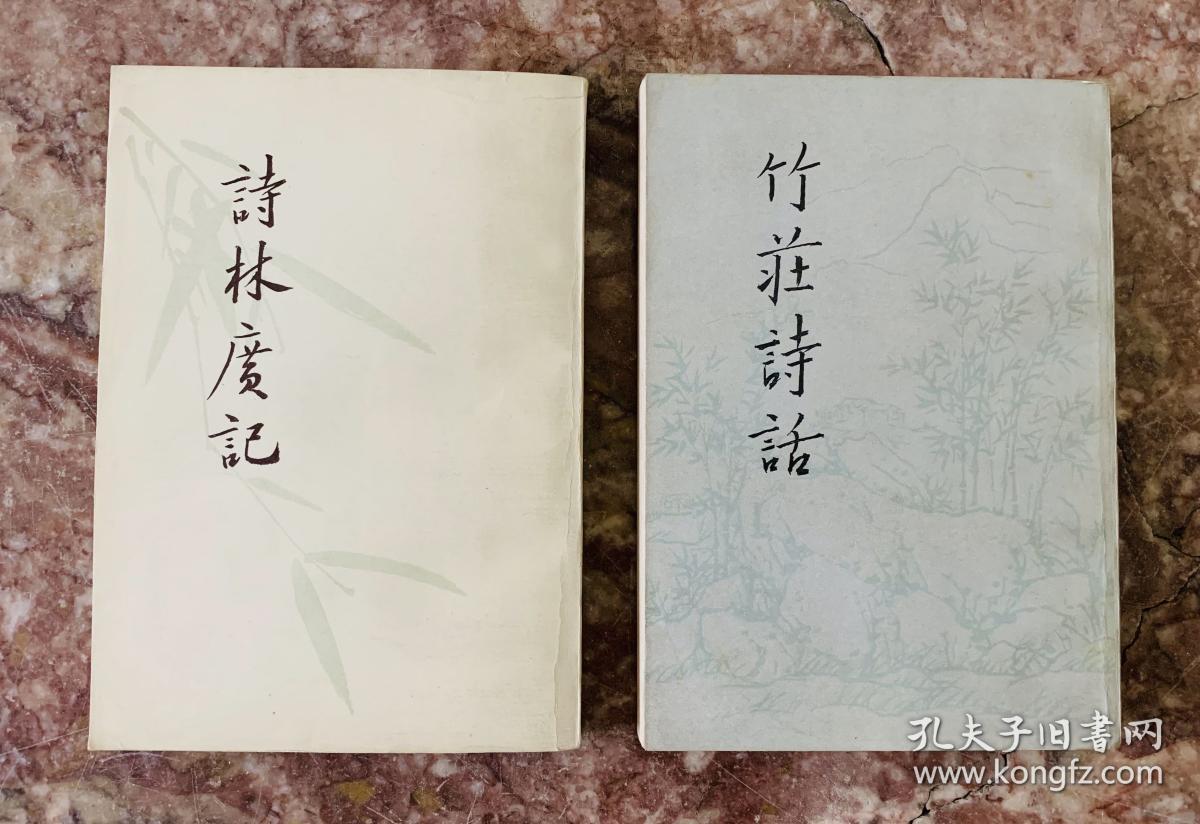 詩林廣記
竹莊詩話
孔夫子旧书网
www.kongfz.com